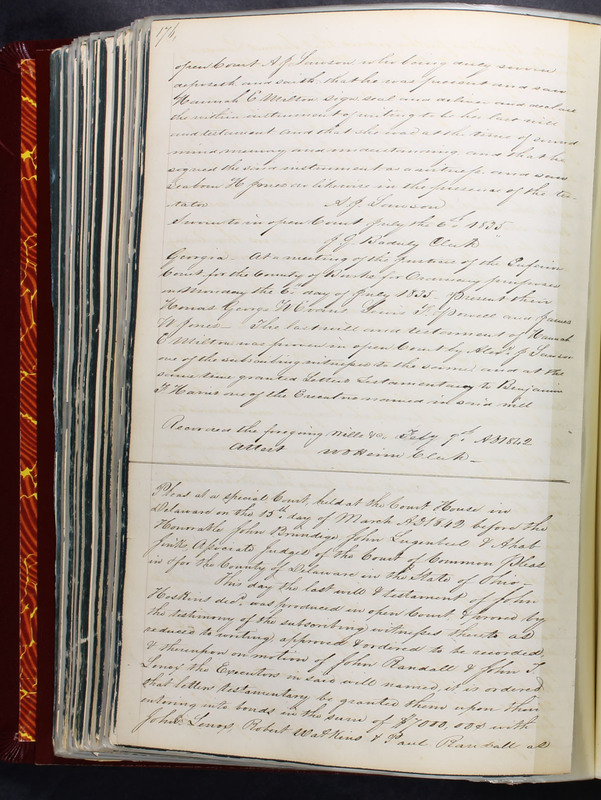 176.
open Court A J Lawson who being duly sworn
deposeth and saith that he was present and saw
Hannah E Melton sign seal and deliver and declare
the within instrument of writing to be her last will
and testament and that she was at the time of sound
mind memory and understanding and that he
signed the said instrument as a witness and saw
H Jones do likewise in the presence of the tes-
tator A J Lawson
Sworn to in open Court July the 6th 1835
J G Clerk
Georgia At a meeting of the Justices of the Inferior
Court for the County of Burke for Ordinary purposes
on Monday the 6th day of July 1835 Present their
Honors George W Evans Lewis F Powell and James
W Jones The last will and testament of Hannah
E Melton was proven in open Court by Alex J Lawson
one of the subscribing witnesses to the same and at the
same time granted Letters Testamentary to Benjamin
F Harris one of the Executors named in said will
Recorded the foregoing Wills &c. Feby 9th AD 1842
Attest W D Heim Clerk
Pleas at a special Court held at the Court House in
Delaware on the 15th day of March AD 1842 before the
Honorable John Brundige, John Lugenbeel & Ahab
Jinks Associate Judges of the Court of Common Pleas
in & for the County of Delaware in the State of Ohio
This day the last will & testament of John
Hoskins decd was produced in open Court & proved by
the testimony of the subscribing witnesses thereto as
reduced to writing, approved & ordered to be recorded,
& thereupon on motion of John Randall & John T
Lenox the Executors in said will named, it is ordered
that letters testamentary be granted them upon their
entering into bonds in the sum of $7000,00 with
John Lenox, Robert Watkins & Paul Randall as